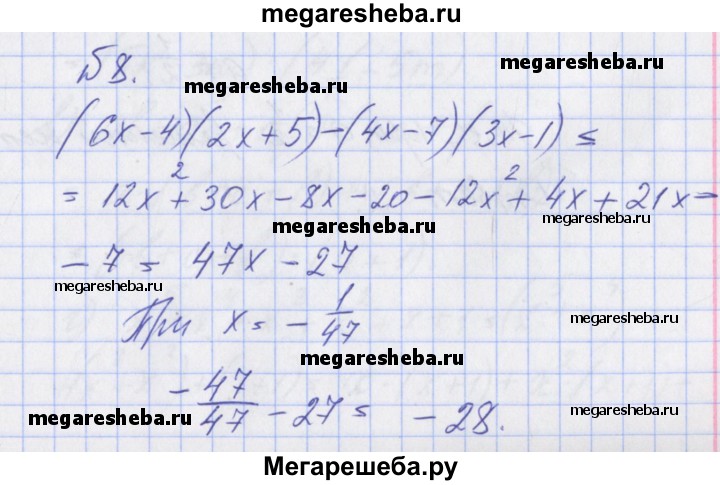 megaresheba.ru
№8.
megaresheba.ru
megaresheba.ru
(6x-4)(2x+5)-(4x-7)(3x-1)=
= 12x²+30x-8x-20-12x²+4x+21x-
megaresheba.ru
megaresheba.ru
-7= 47x-27
megaresheba.ru
При x= -1/47
megaresheba.ru
megaresheba.ru
-47/47-27= -28.
megaresheba.ru
megaresheba.ru
Мегарешеба.ру